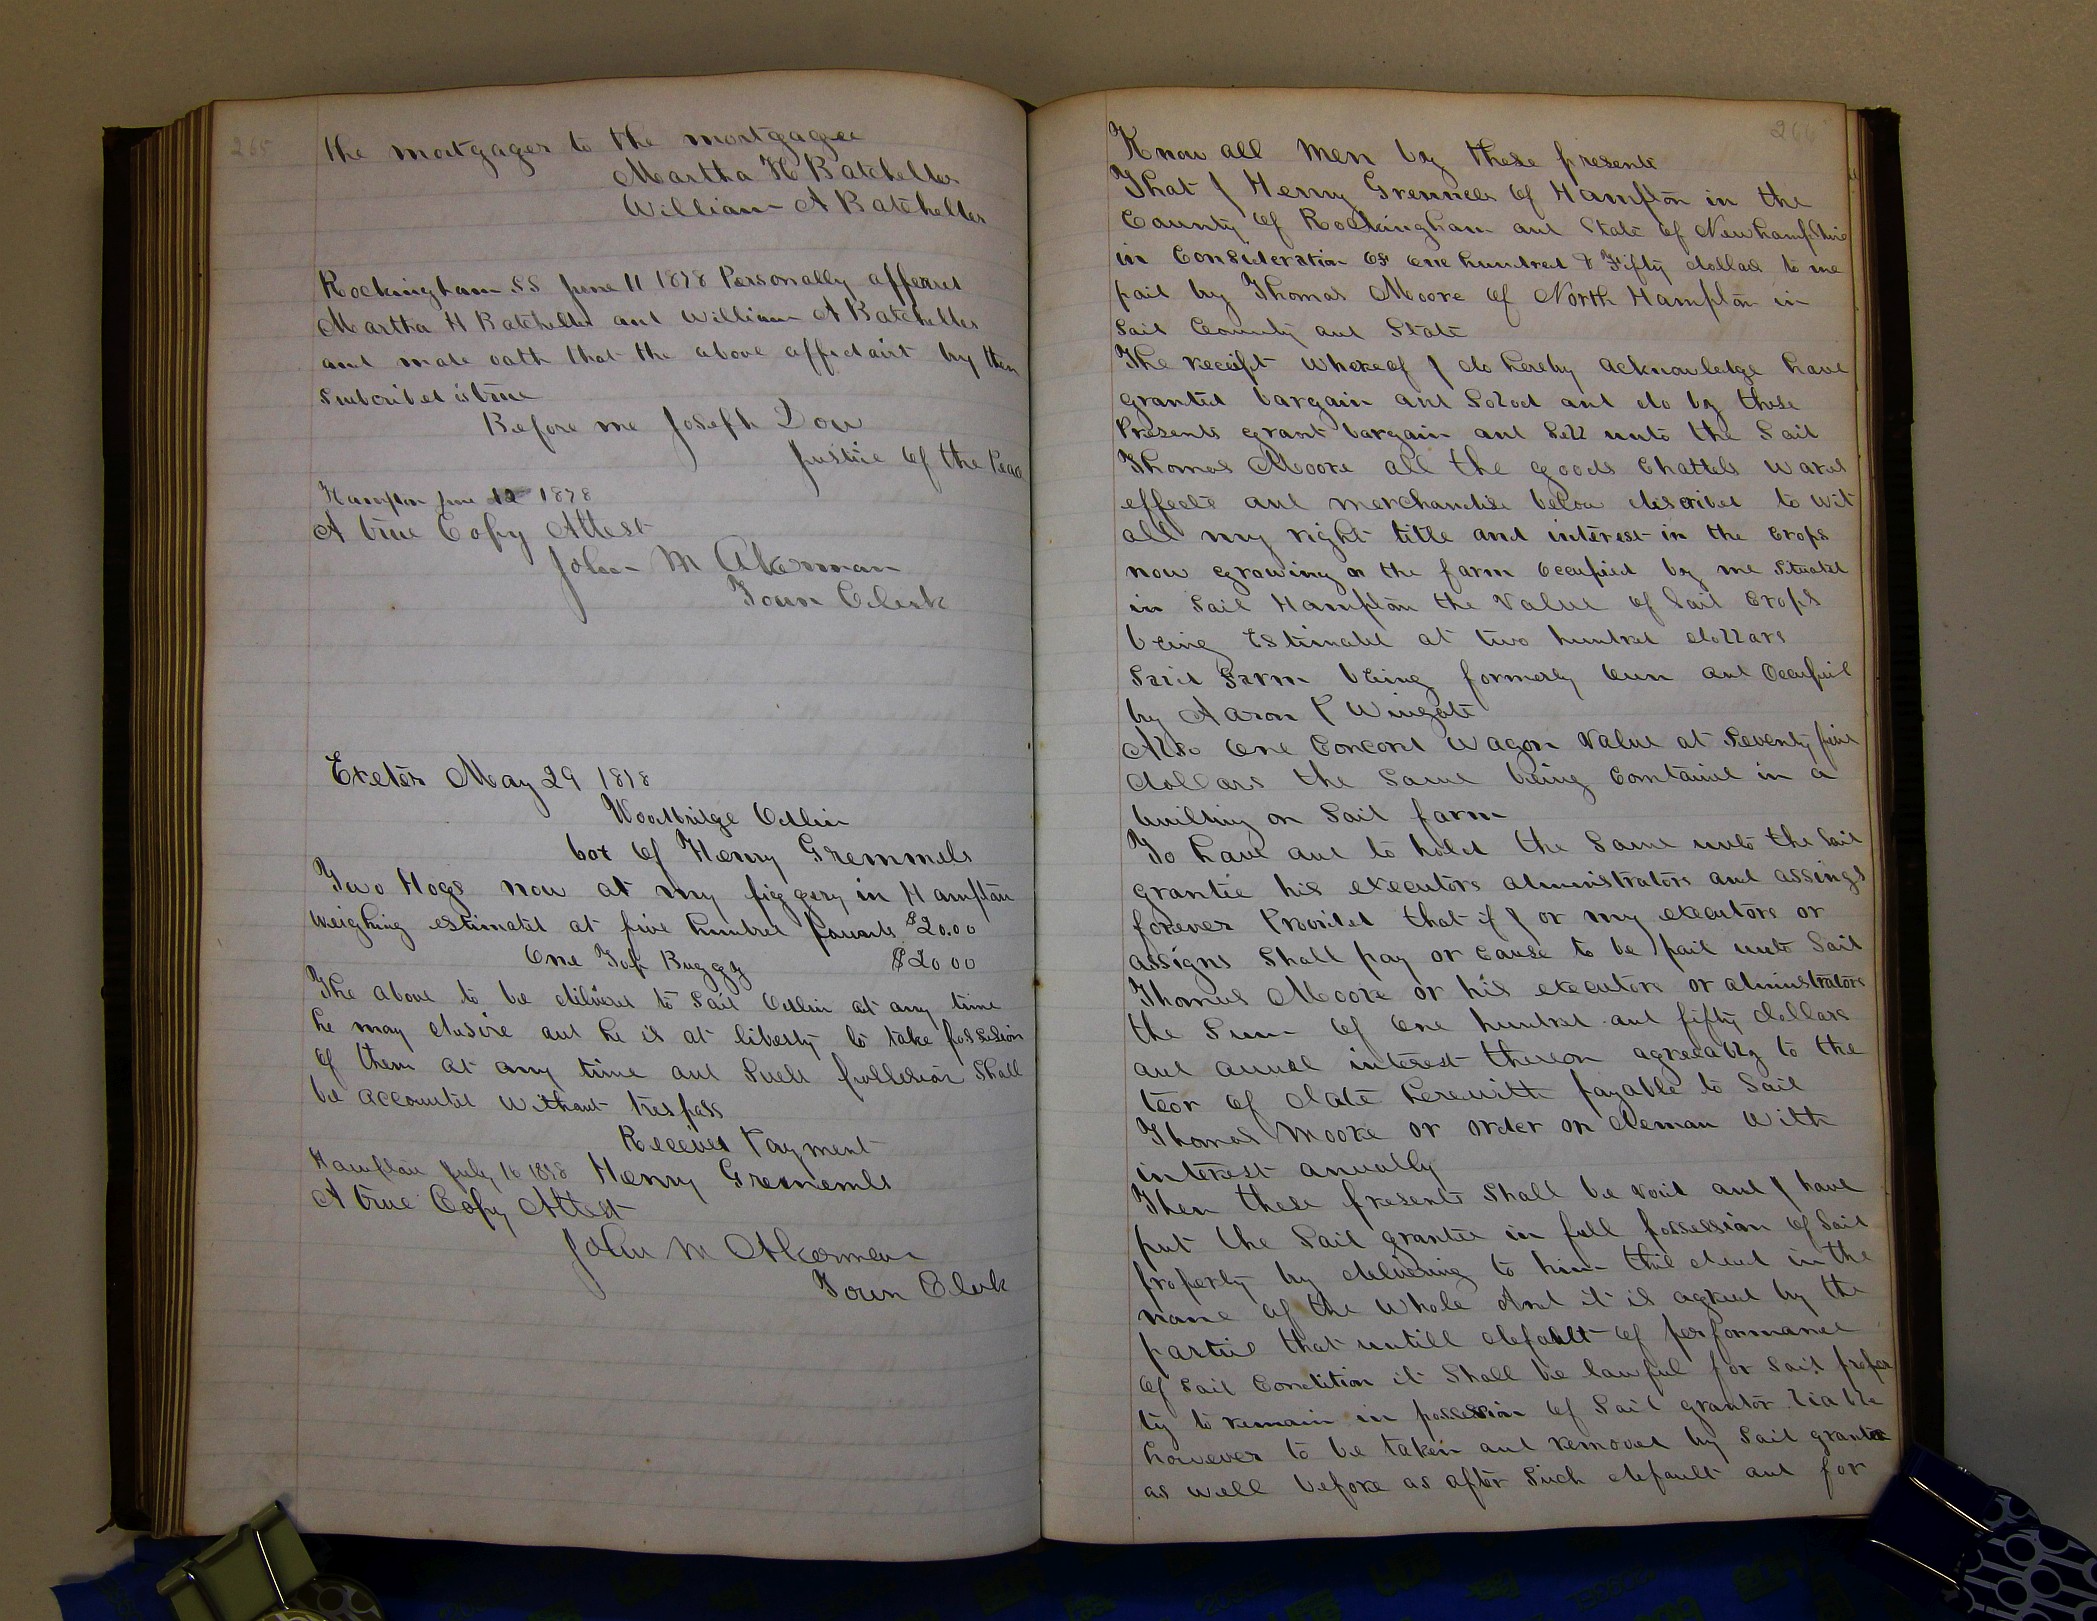 265
the mortgager to the mortgagee
Martha H Batchelder
William A Batchelder
Rockingham SS June 11 1878 Personally appeared
Martha H Batchelder and William A Batchelder
and made oath that the above affidavit by them
subcribed is true
Before me Joseph Dow
Justice of the Peace
Hampton June 12 1878
A true Copy Attest
John M Akerman
Town Clerk
Exeter May 29 1878
Woodbridge Odlin
bot of Henry Gremmels
Two Hogs now at my piggery in Hampton
weighing estimated at five hundred pounds $20.00
One Top Buggy $20 00
The above to be delivered to Said Odlin at any time
he may desire and he is at liberty to take possesion
of them at any time and Such possession Shall
be accounted without trespass
Received Payment
Hampton July 16 1878 Henry Gremmels
A true Copy Attest
John M Akerman
Town Clerk
266
Know all Men by these presents
That I Henry Gremmels of Hampton in the
County of Rockingham and State of Newhampshire
in Consideration of one hundred & Fifty dollars to me
paid by Thomas Moore of North Hampton in
Said County and State
The receipt whereof I do hereby acknowledge have
granted bargain and Solod and do by these
Presents grant bargain and Sell unto the Said
Thomas Moore all the goods Chattels wares
effects and merchandise below discribed to wit
all my right title and interest in the crops
now growing on the farm occupied by me Situated
in Said Hampton the Value of Said Crops
being Estimated at two hundred dollars
Said Farm being formerly own and Occupied
by Aaron P Wingate
Also one Concord Wagon Value at Seventy five
dollars the Same being Contained in a
building on Said farm
To have and to hold the Same unto the Said
grantee his executors administrators and assings
forever Provided that if I or my executors or
assigns Shall pay or cause to be paid unto Said
Thomas Moore or his executors or administrators
the Sum of one hundred and fifty dollars
and annual interest thereon agreeably to the
of date herewith payable to Said
Thomas Moore or order on deman with
interest anually
Then these presents Shall be void and I have
put the Said grantee in full possession of Said
property by delivering to him this deed in the
name of the whole And it is agreed by the
parties that untill default of performance
of Said Condition it Shall be lawful for Said proper
ty to remain in possession of Said grantor liable
however to be taken and removed by Said grantee
as well before as after Such default and for